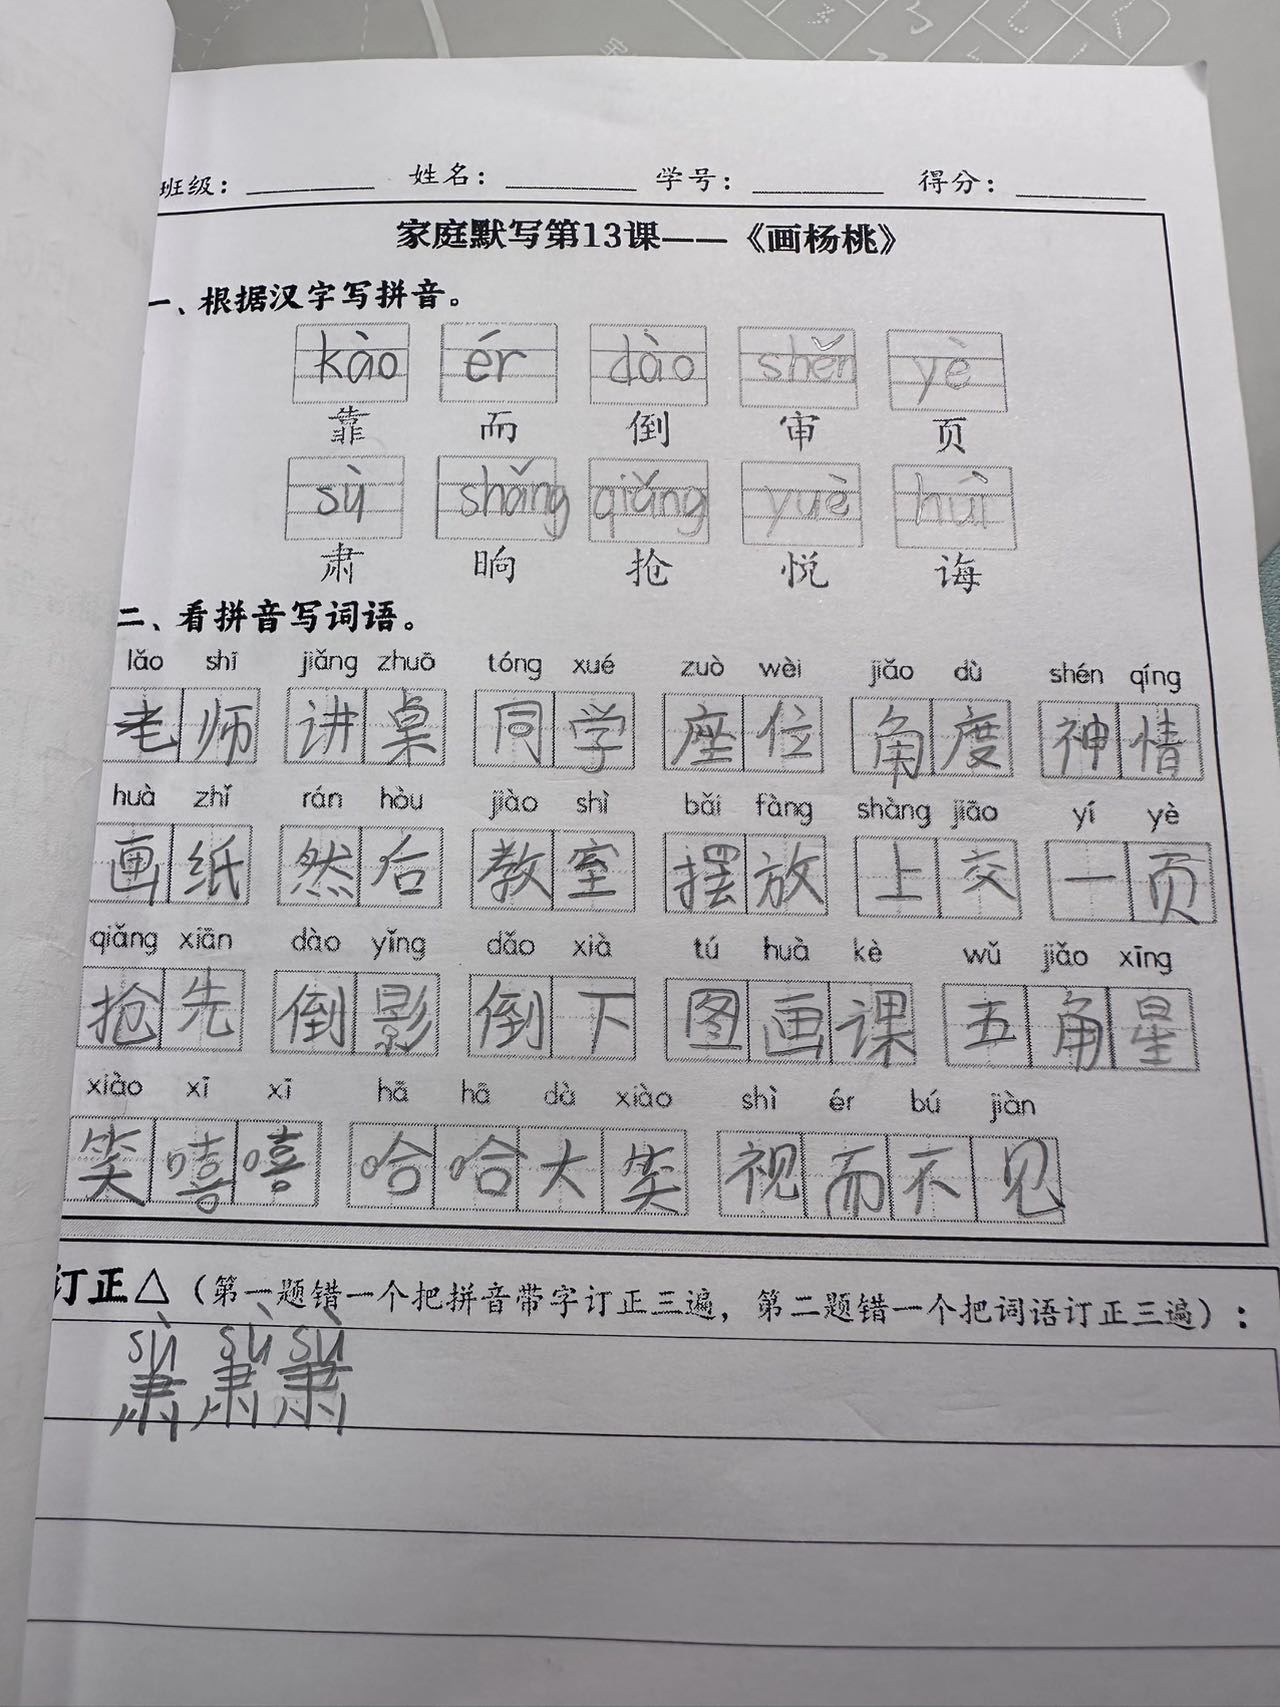 班级：________ 姓名：________ 学号：________ 得分：________
家庭默写第13课——《画杨桃》
一、根据汉字写拼音。
kào ér dào shěn yè
靠 而 倒 审 页
sù shǎng qiǎng yuè huì
肃 晌 抢 悦 诲
二、看拼音写词语。
lǎo shī jiǎng zhuō tóng xué zuò wèi jiǎo dù shén qíng
老师 讲桌 同学 座位 角度 神情
huà zhǐ rán hòu jiào shì bǎi fàng shàng jiāo yí yè
画纸 然后 教室 摆放 上交 一页
qiǎng xiān dào yǐng dǎo xià tú huà kè wǔ jiǎo xīng
抢先 倒影 倒下 图画课 五角星
xiào xī xī hā hā dà xiào shì ér bú jiàn
笑嘻嘻 哈哈大笑 视而不见
订正△（第一题错一个把拼音带字订正三遍，第二题错一个把词语订正三遍）：
sù sù sù
肃 肃 肃